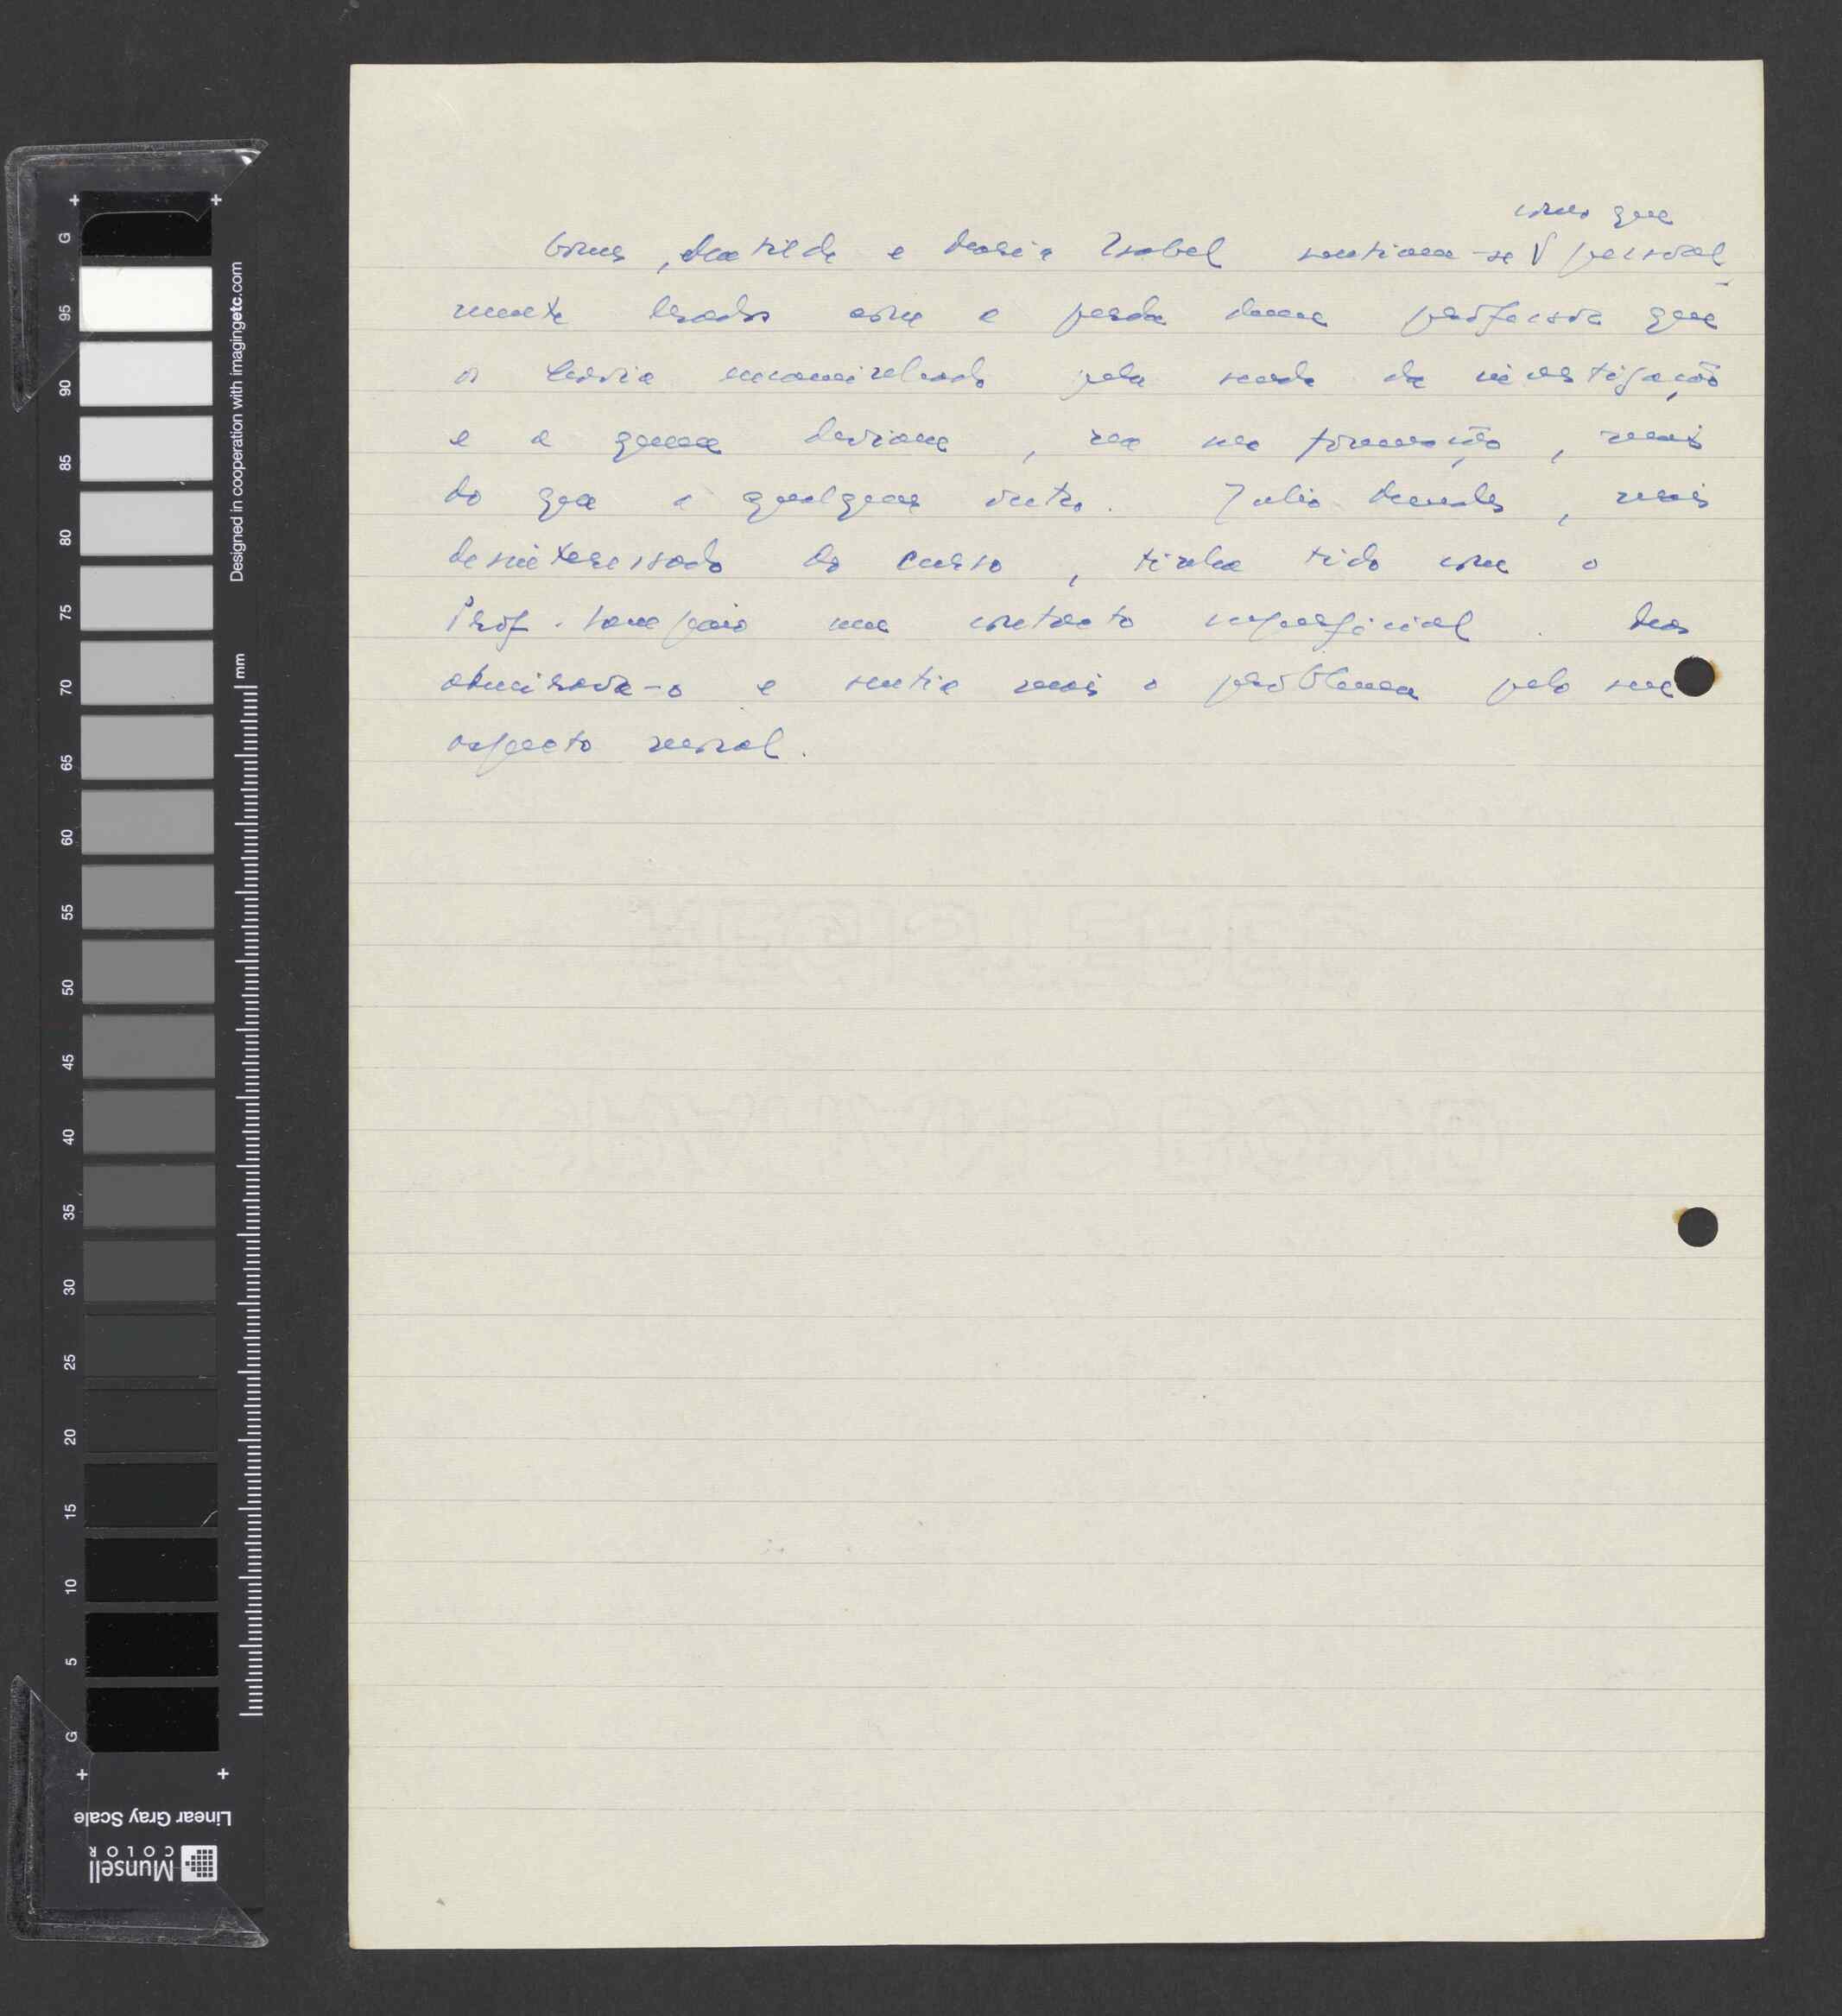 como que
Gomes, Matilde e Maria Isabel sentiam-se V pessoal-
mente lesados com a perda duma professora que
os havia encaminhado pela senda da investigação
e a quem deviam, na sua formação, mais
do que a qualquer outro. Julio Mendes, mais
desinteressado do curso, tinha tido com o
Prof. Sampaio um contacto superficial. Mas
admirava-o e sentia mais o problema pelo seu
aspecto moral.
G
95
90
85
80
75
70
65
60
55
50
45
40
35
30
25
20
15
10
5
G
Designed in cooperation with imagingetc.com
mm
Linear Gray Scale
Munsell
COLOR